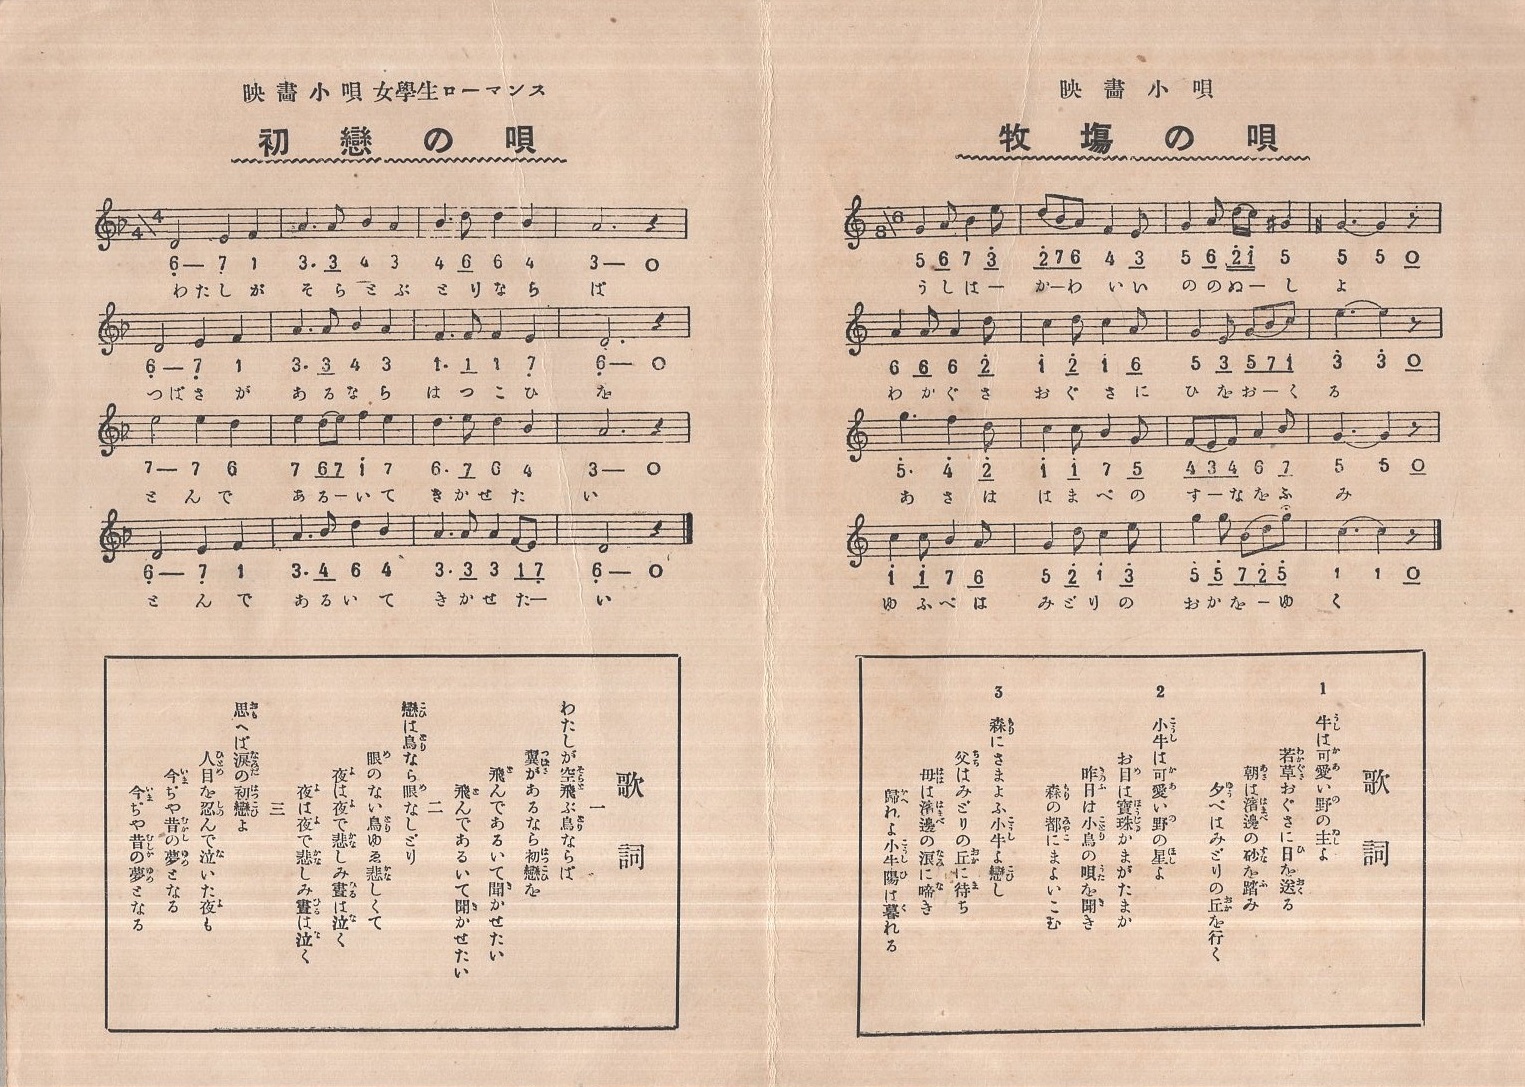 映畵小唄
牧場の唄
5 6 7 3 2 7 6 4 3 5 6 2 1 5 5 5 0
うしはー かーわいい ののぬーし よ
6 6 6 2 1 2 1 6 5 3 5 7 1 3 3 0
わかぐさ おぐさに ひをおーく る
5. 4 2 1 1 7 5 4 3 4 6 7 5 5 0
あさは はまべの すーなをふ み
1 1 7 6 5 2 1 3 5 5 7 2 5 1 1 0
ゆふべは みどりの おかをーゆ く
歌詞
1
牛は可愛い野の主よ
若草おぐさに日を送る
朝は濱邊の砂を踏み
夕べはみどりの丘を行く
2
小牛は可愛い野の星よ
お目は寶珠かまがたまか
昨日は小鳥の唄を聞き
森の都にまよいこむ
3
森にさまよふ小牛よ戀し
父はみどりの丘に待ち
母は濱邊の浪に啼き
歸れよ小牛陽は暮れる
映畵小唄 女學生ローマンス
初戀の唄
6— 7 1 3. 3 4 3 4 6 6 4 3— 0
わたしが そらとぶ とりなら ば
6— 7 1 3. 3 4 3 1. 1 1 7 6— 0
つばさが あるなら はつこひ を
7— 7 6 7 6 7 1 7 6. 7 6 4 3— 0
とんで あるーいて きかせた い
6— 7 1 3. 4 6 4 3. 3 3 1 7 6— 0
とんで あるいて きかせたー い
歌詞
一
わたしが空飛ぶ鳥ならば
翼があるなら初戀を
飛んであるいて聞かせたい
飛んであるいて聞かせたい
二
戀は鳥なら眼なしどり
眼のない鳥ゆゑ悲しくて
夜は夜で悲しみ晝は泣く
夜は夜で悲しみ晝は泣く
三
思へば涙の初戀よ
人目を忍んで泣いた夜も
今ぢや昔の夢となる
今ぢや昔の夢となる